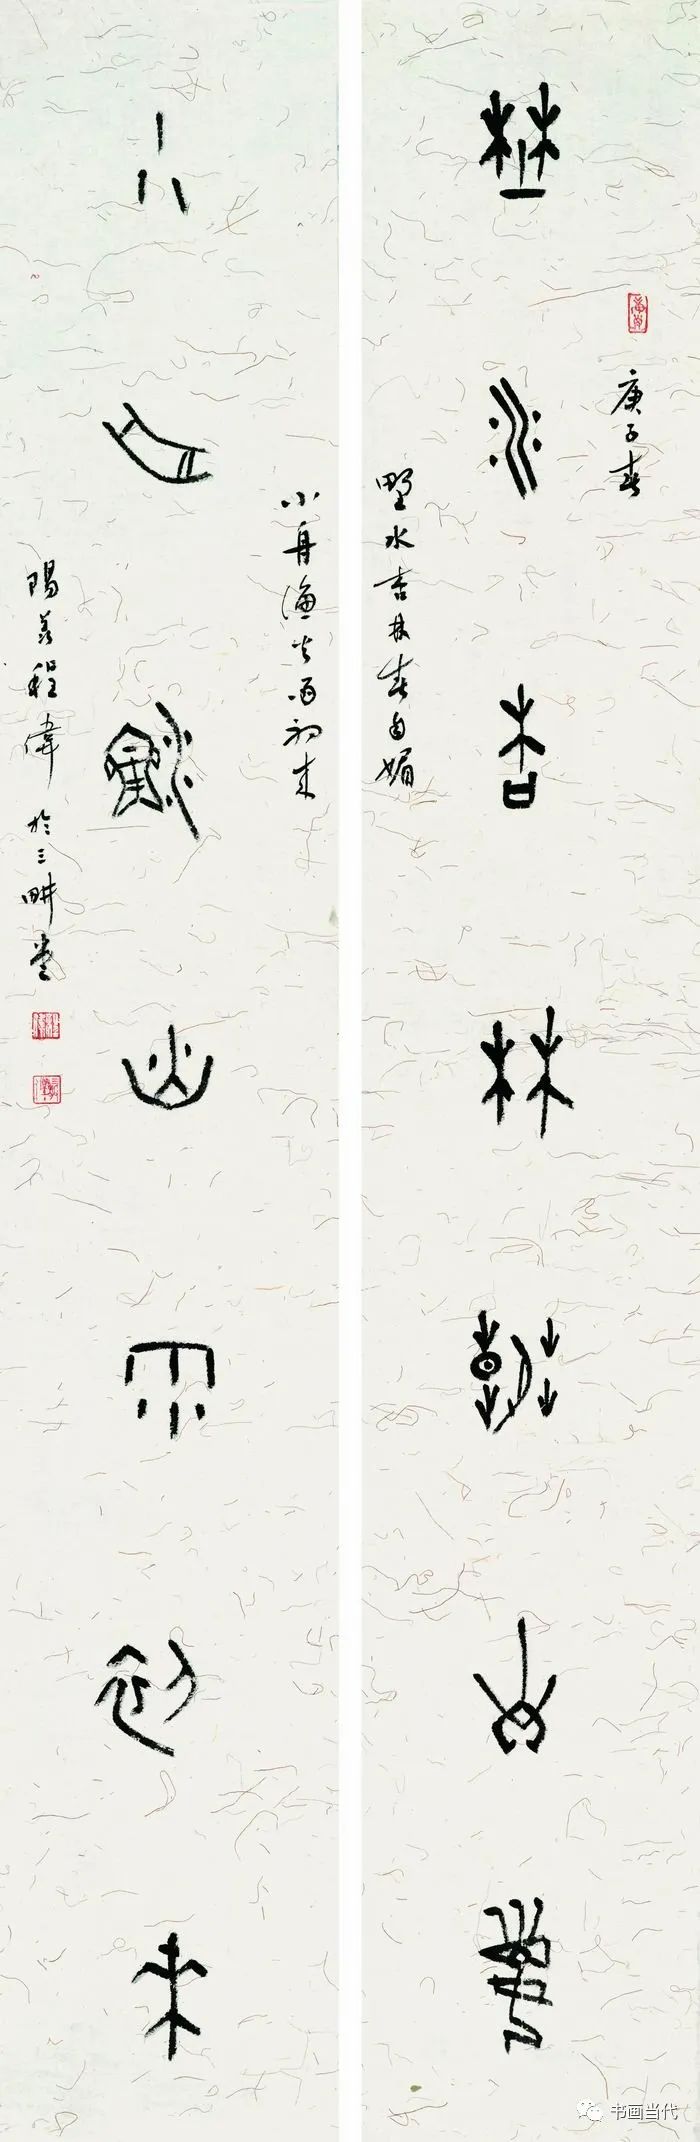 埜水杏林春自媚
庚子春
野水杏林春自媚
小舟漁火雨初來
小舟漁火雨初来
陽羡程偉於三畊堂
书画当代